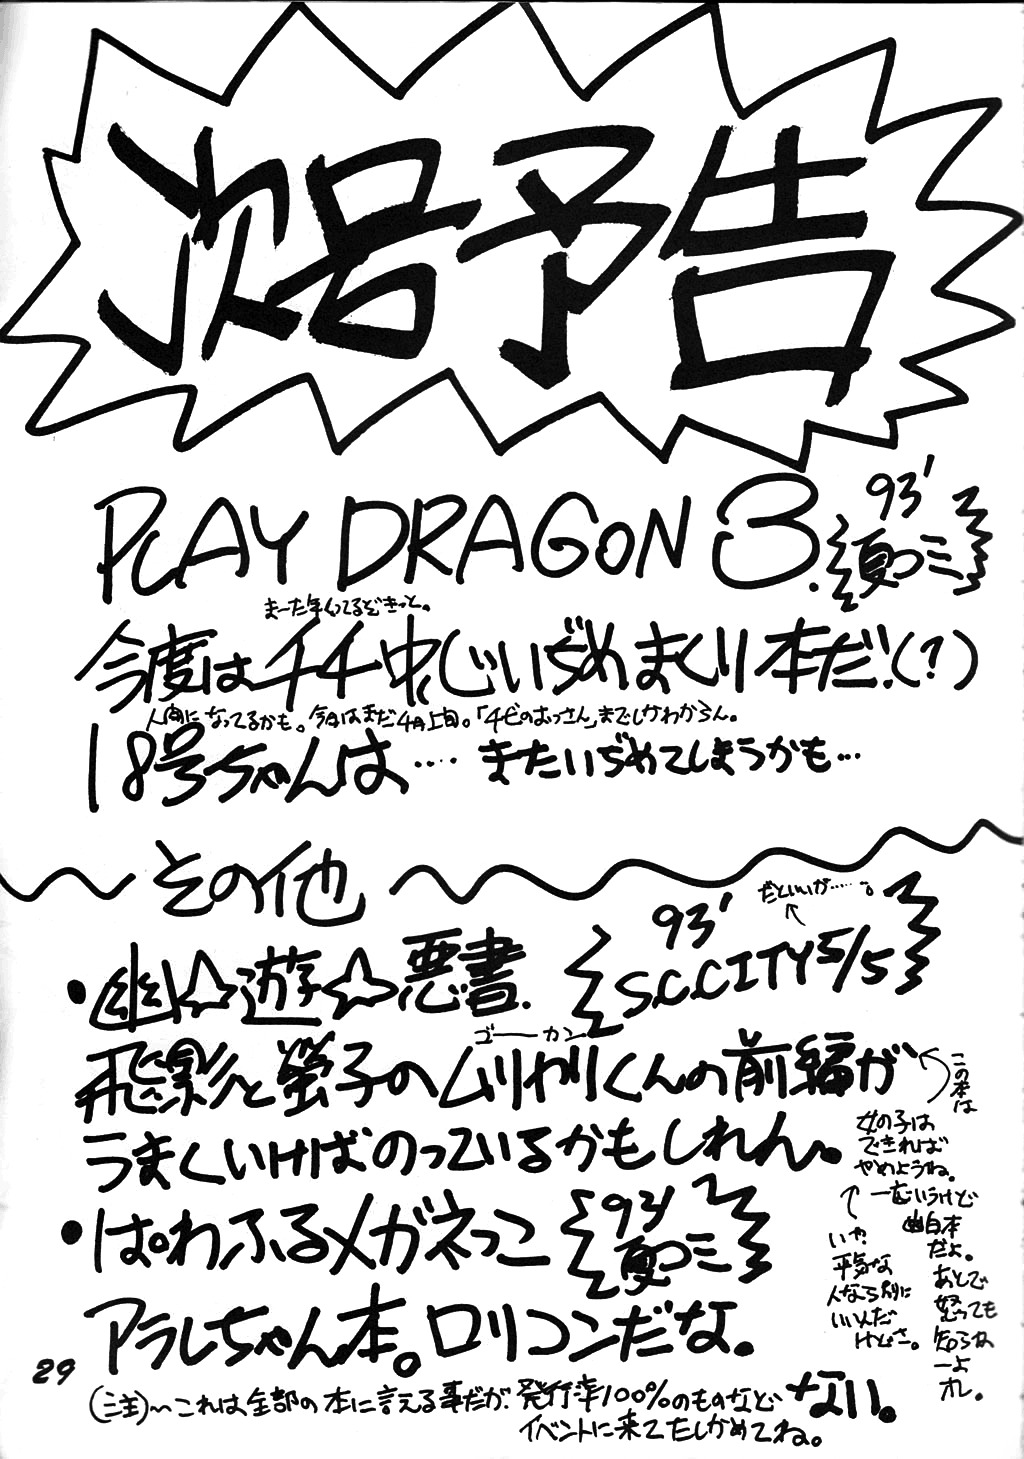 次号予告
PLAY DRAGON 3. 93' 夏コミ
まーた年くってるぞきっと。
今度はチチ中心いぢめまくり本だ!(?)
人間になってるかも。今日はまだ4月上旬。「チビのおっさん」までしかわからん。
18号ちゃんは…. またいぢめてしまうかも…
その他
だといいが……。
・幽☆遊☆悪書. 93' S.C.CITY5/5
ゴーカン
飛影と螢子のムリヤリくんの前編が
うまくいけばのっているかもしれん。
この本は
女の子は
できれば
やめようね。
一応いうけど
幽白本
だよ。
あとで
怒っても
知らね
ーよ
オレ。
いや
平気な
人なら別に
いいんだ
けどさ。
・ぱわふるメガネっこ 93' 夏コミ
アラレちゃん本。ロリコンだな。
29
(注)〜これは全部の本に言える事だが、発行率100%のものなどない。
イベントに来てたしかめてね。